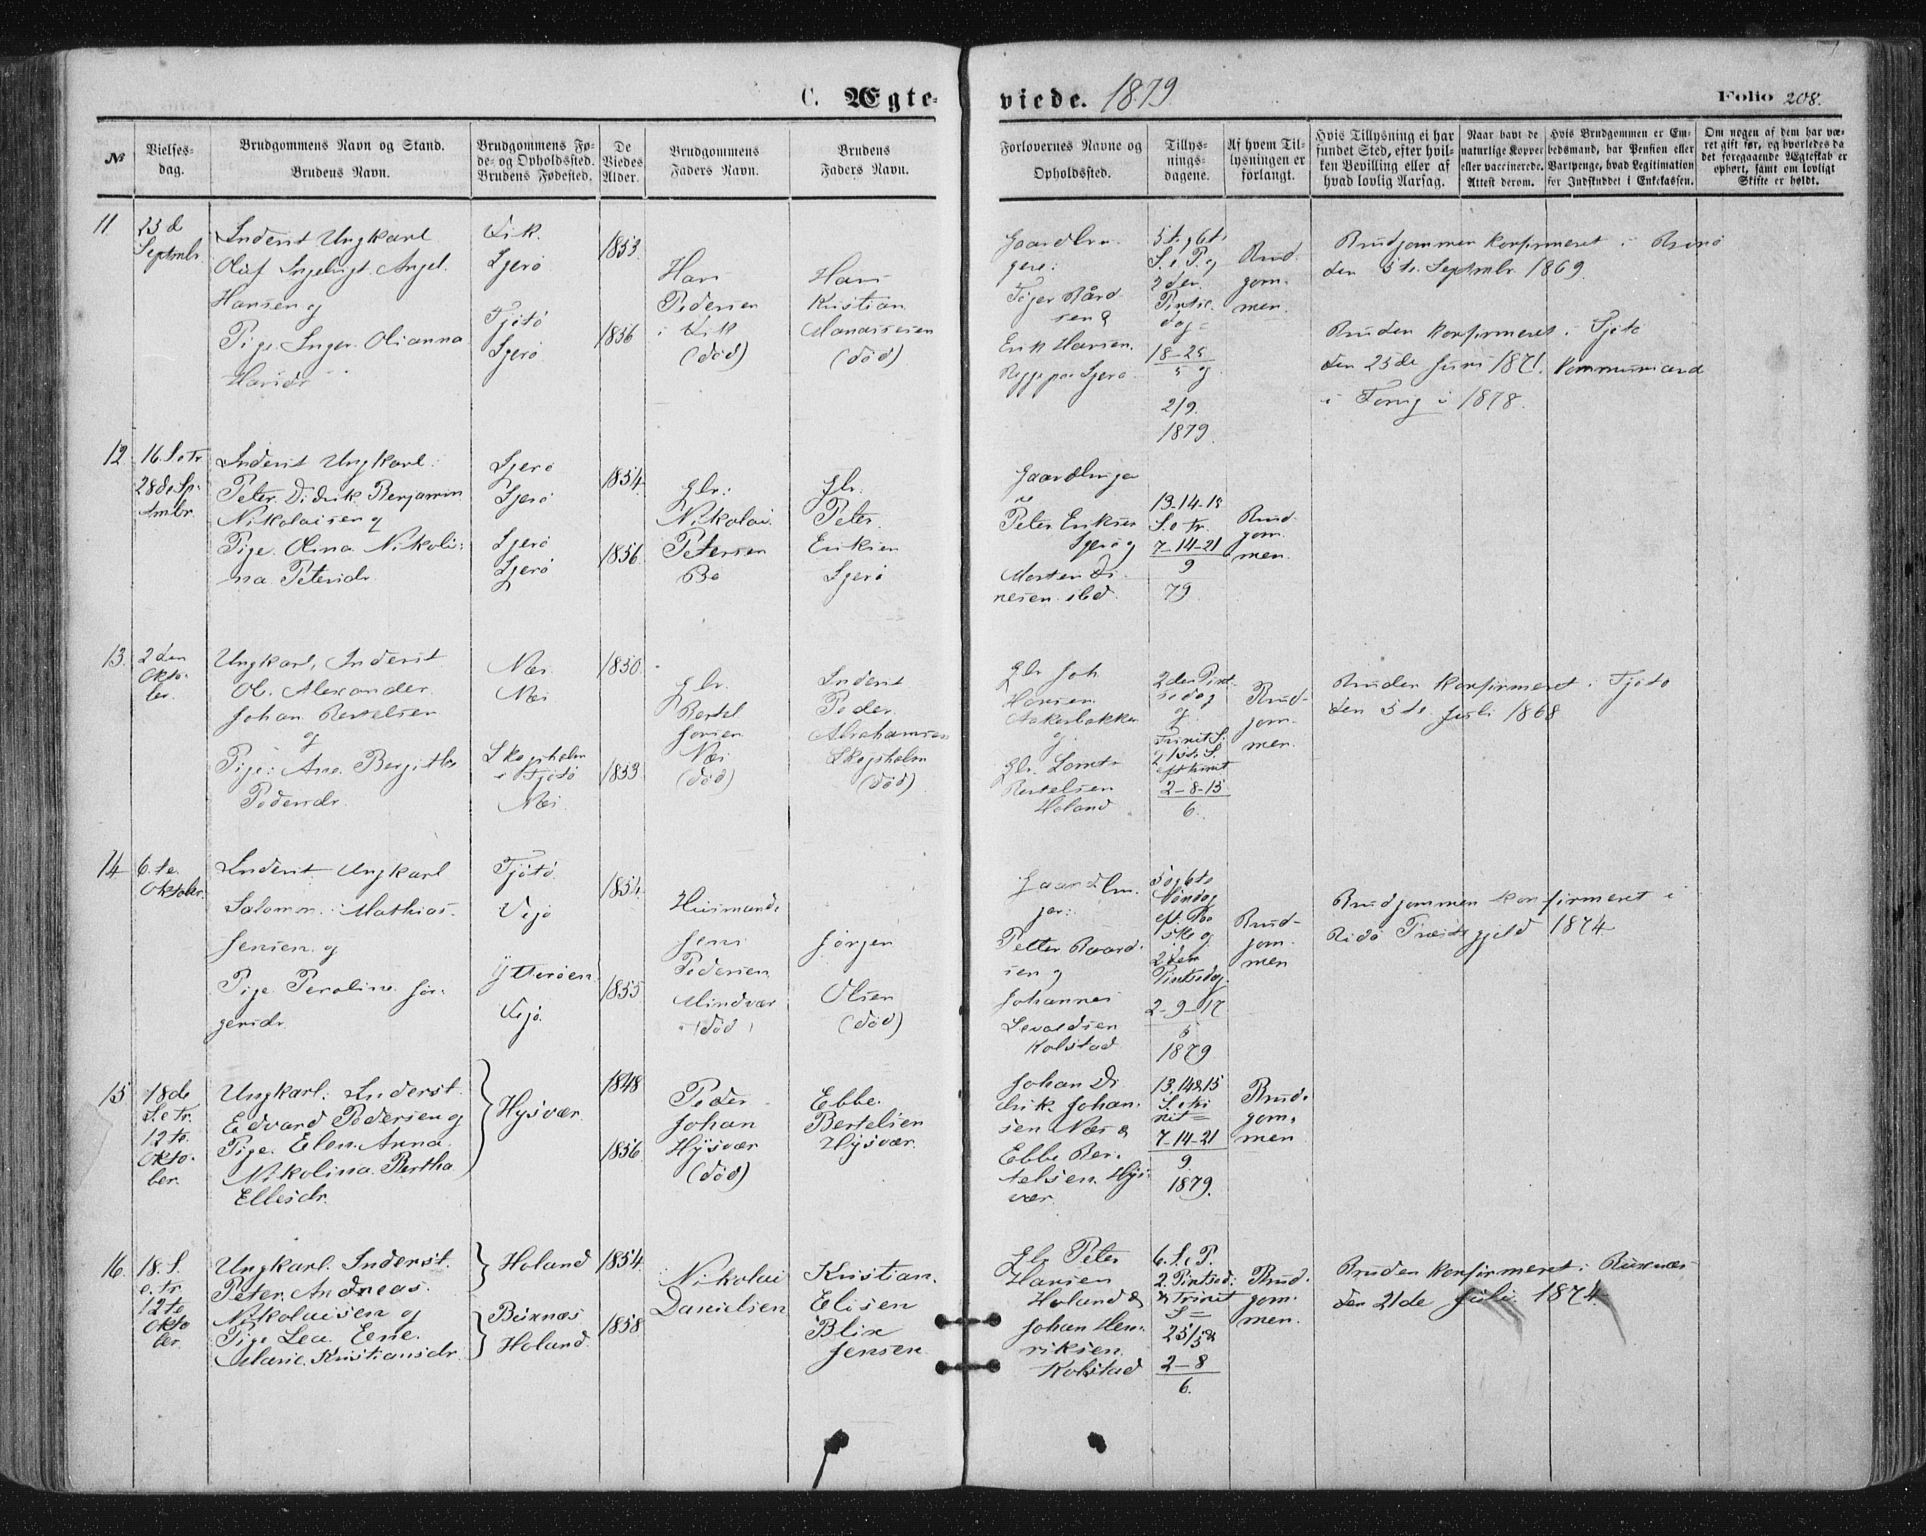 C. Ægte-
viede. 1879
Folio 208.
No
Vielses-
dag.
Brudgommens Navn og Stand.
Brudens Navn.
Brudgommens Fø-
de- og Opholdssted.
Brudens Fødested.
De
Viedes
Alder.
Brudgommens
Faders Navn.
Brudens
Faders Navn.
Forlovernes Navne og
Opholdssted.
Tillys-
nings-
dagene.
Af hvem Til-
lysningen er
forlangt.
Hvis Tillysning ei har
fundet Sted, efter hvil-
ken Bevilling eller af
hvad lovlig Aarsag.
Naar havt de
naturlige Kopper
eller vaccinerede.
Attest derom.
Hvis Brudgommen er Em-
bedsmand, har Pension eller
Vartpenge, hvad Legitimation
for Indskuddet i Enkekassen.
Om nogen af dem har væ-
ret gift før, og hvorledes da
det foregaaende Ægteskab er
ophørt, samt om lovligt
Skifte er holdt.
11
23d
Septmbr
Inderst Ungkarl
Oluf Ingebrigt Angel
Hansen og
Pige Inger Olianna
Hansdr
Vik
Sjerø
Tjøtø
Sjerø
1853
1856
Hans
Pedersen
i Vik
(død)
Hans
Kristian
(død)
Gaardbru
gere:
Erik Hansen
5t og 6t
S. e. P. og
2den
Pintse
dag =
18-25
5 og
2/9.
1879.
Brud
gom-
men.
Brudgommen konfirmeret i
den 5te Septmbr 1869.
Bruden konfirmeret i Tjøtø
den 25de Juni 1871. Kommunicand
i 1878.
12
16 S. e. Tr
28de Sep
tmbr.
Inderst Ungkarl
Peter Didrik Benjamin
Nikolaisen og
Pige Olina Nikoli-
na Petersdr
Sjerø
Sjerø
Sjerø
Sjerø
1854
1856
Gbr:
Nikolai
Petersen
Bø
Gbr.
Peter
Eriksen
Sjerø
Gaardbruger
Peter Eriksen
Sjerø og
Morten Di
nesen ibd
13-14-15
S. e. tr.
7-14-21
9
79
Brud-
gom-
men.
13.
2den
Okto-
ber.
Ungkarl, Inderst
Ol. Alexander
Johan Bertelsen
og
Pige: Ane Bergitte
Pedersdr.
Næs
Næs
Skogsholm
i Tjøtø
Næs
1850
1853
Gbr.
Bertel
Jonsen
Næs
(død)
Inderst
Peder
Abrahamsen
Skogsholm
(død)
Gbr Joh
Hansen
Aakerbakken
og
Gbr.
Bertelsen
Holand
2den Pint
sedag
og
Trinit S.
2-8-15
6.
Brud-
gom-
men.
Bruden konfirmeret i Tjøtø
den 5te Juli 1868
14
6te
Oktober
Inderst Ungkarl
Salomon Mathias
Jensen og
Pige Peroline Jør-
gensdr
Tjøtø
Vejø
Ytterøen
Vejø
1854
1855
Husmand
Jens
Pedersen
Mindvær
(død)
Jørgen
Olsen
(død)
Gaardbru-
ger:
Petter Baard-
sen og
Johannes
Kolstad
5 og 6te
Søndag
ef. Paa
ske og
2den
Pintsedag.
2-9-17
5
1879
Brud-
gom-
men
Brudgommen konfirmeret i
Rødø Præstegjeld 1874
15
18de
S. e. tr.
12te
Okto-
ber.
Ungkarl: Inderst
Edvard Pedersen og
Pige Elen Anna
Nikolina Bertha
Ebbesdr.
Hysvær
1848
1856
Peder
Johan
Hysvær
(død)
Ebbe
Bertelsen
Hysvær.
Johan Di
drik Johan-
sen Næs &
Ebbe Ber-
telsen Hys-
vær
13. 14 & 15
S. e. tri
nit =
7-14-21
9
1879.
Brud-
gom-
men
16.
18. S.
e. tr.
12te
Okto
ber.
Ungkarl. Inderst.
Peter Andreas
Nikolaisen og
Pige Lea Eene
Marie Kristiansdr
Holand
Buxnæs
Holand
1854
1858
Nikolai
Danielsen
Kristian
Elisen
Blix
Jensen
Gbr Peter
Hansen
Holand &
Johan Hen-
riksen
Kolstad
6. S. e. P.
2. Pintsed.
& Trinit
S =
25/5 &
2-8
6.
Brud-
gom-
men.
Bruden konfirmeret i Buxnæs
den 21de Juli 1874